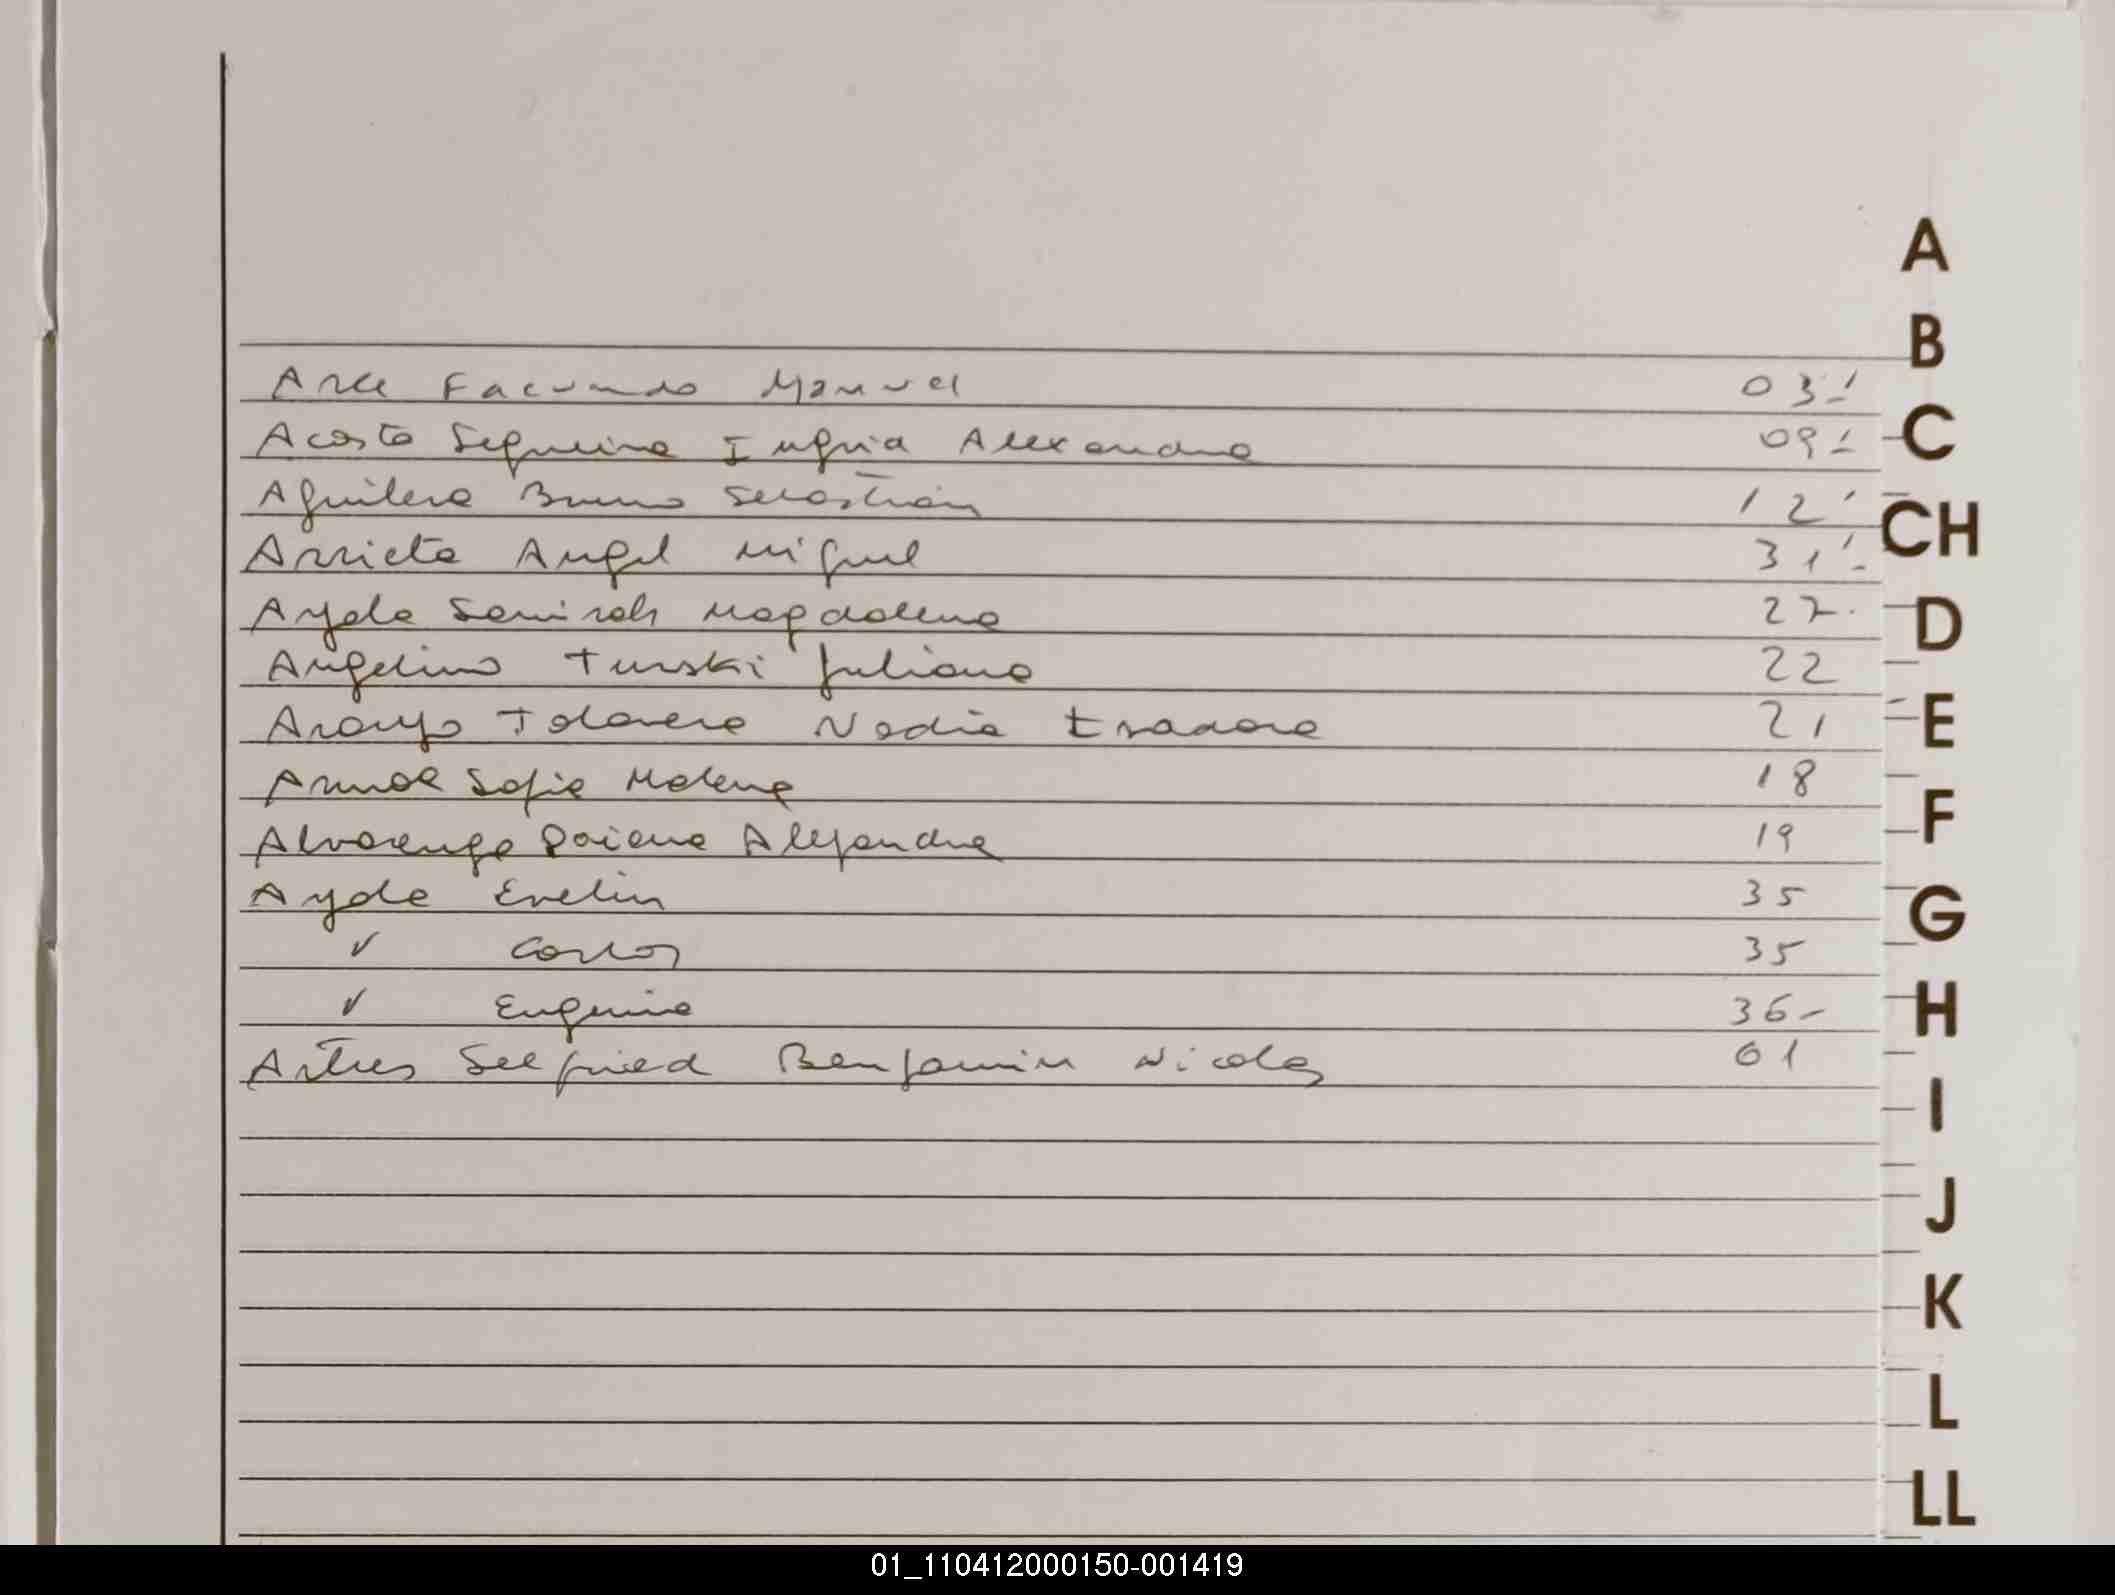 Arce Facundo Manuel 03 A
Acosta Sequeira Ingrid Alexandra 09 B
Aguilera Bruno Sebastián 12 C
Arrieta Angel Miguel 31 CH
Ayala Samirah Magdalena 27 D
Angelino Turski Juliana 22 E
Araujo Talavera Nadia 21 F
Sofia Malena 18 G
Alvarenga Daiana Alejandra 19 H
Ayala Evelin 35 I
Carlos 35 J
Eugenia 36 - K
Seefried Benjamin Nicolas 01 L
LL
01_110412000150-001419